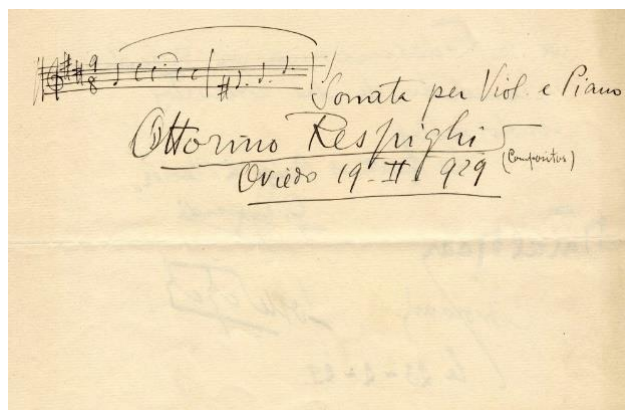 9
8
Sonata per Viol. e Piano
Ottorino Respighi
(Compositor)
Oviedo 19-II 929